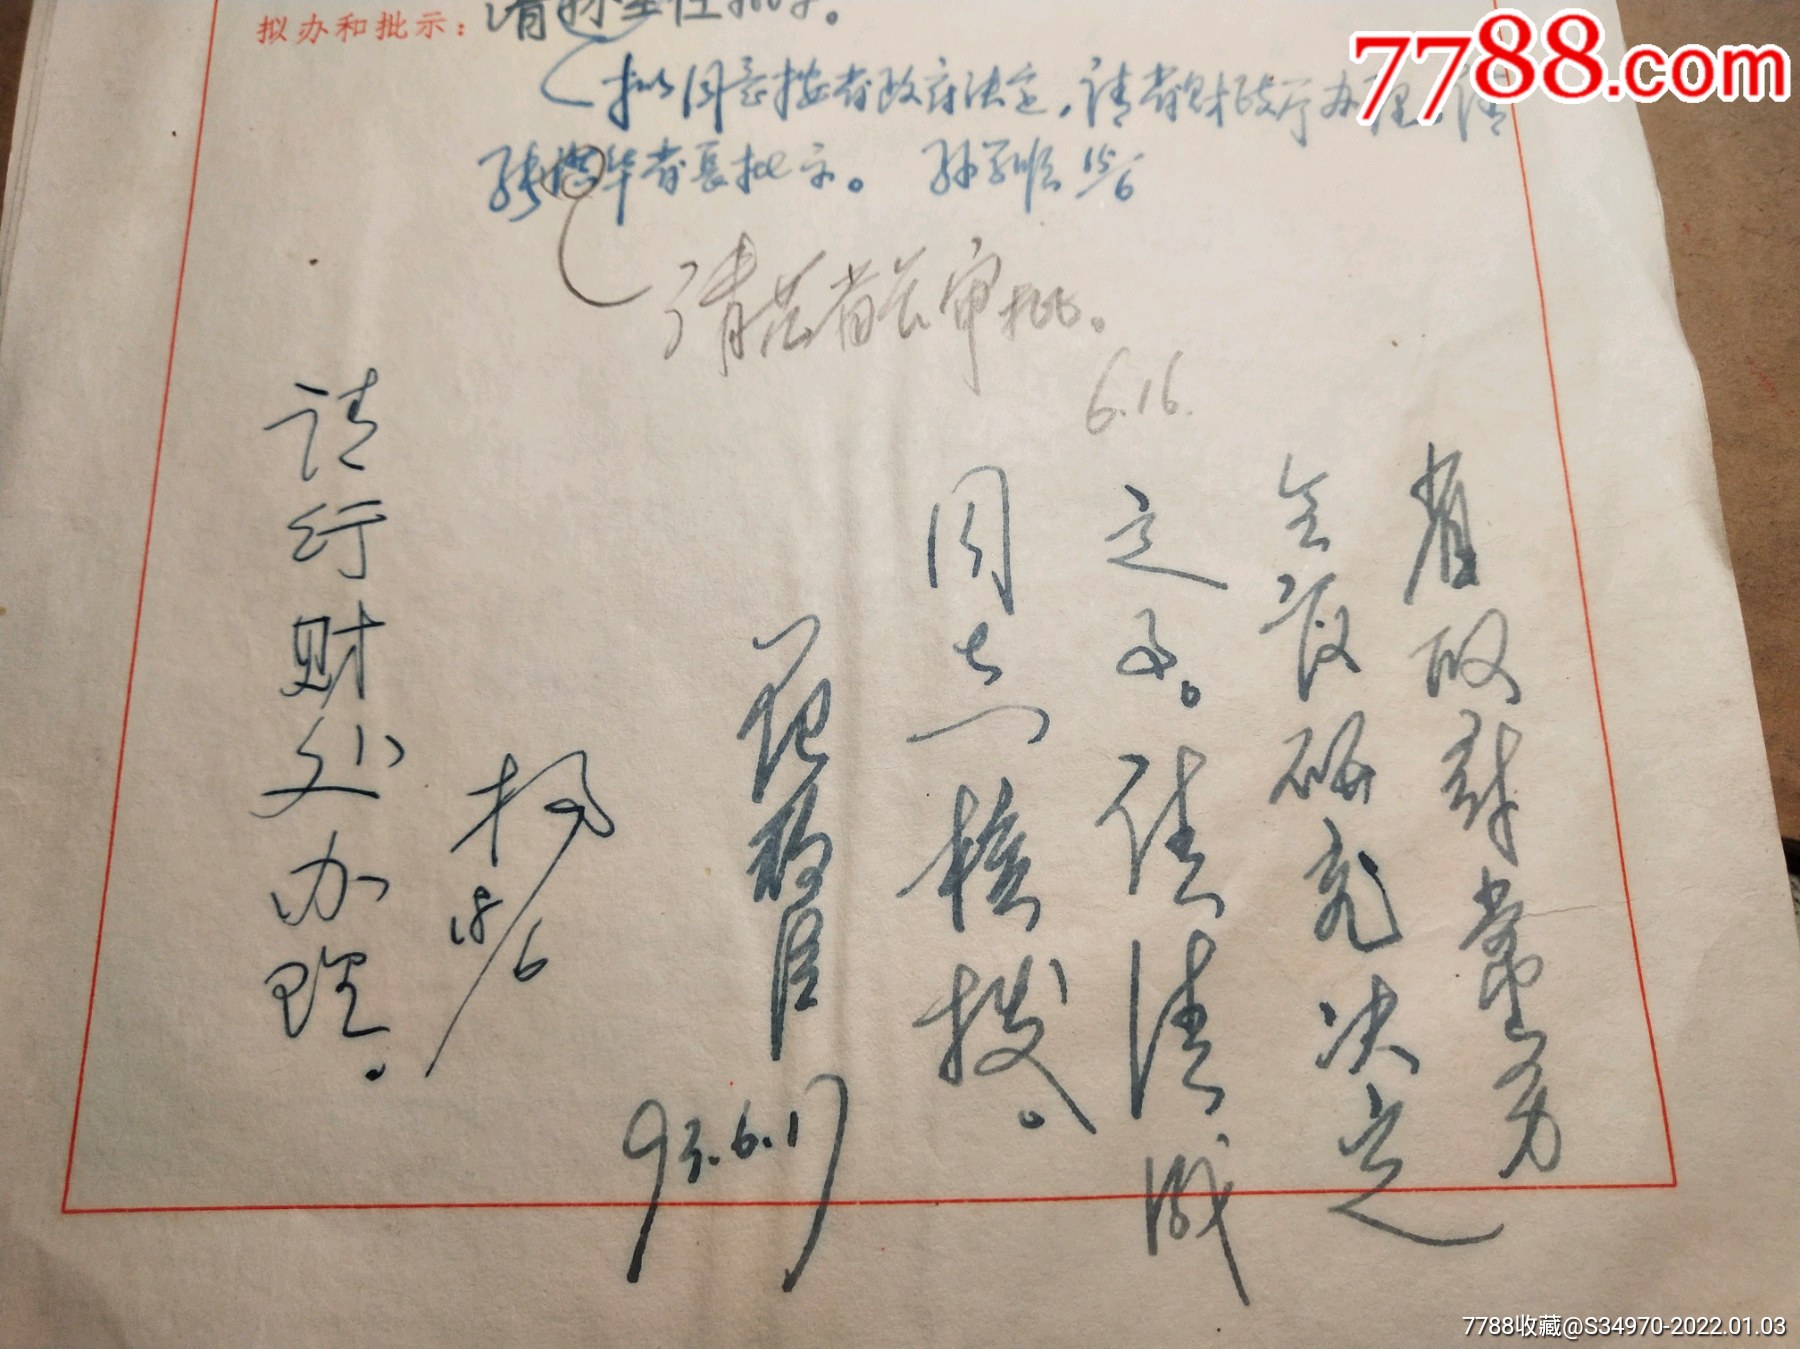 7788.com
拟办和批示：
请孙主任批示。
拟同意按省政府决定，请省财政厅办理，请
张 华省长批示。 孙 顺 15/6
请范省长审批。
6.16.
省政府常务
会议研究决定
定了。请清
同志核拨。
93.6.17
请行财处办理。
杨 18/6
7788收藏@S34970-2022.01.03